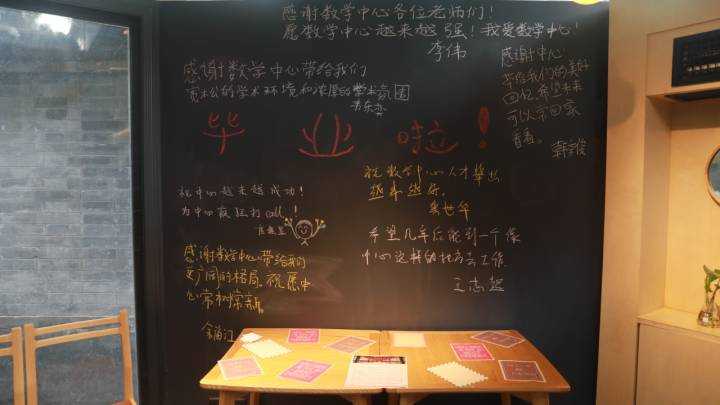 感谢数学中心各位老师们!
愿数学中心越来越强!我爱数学中心!
李伟
感谢中心
带给我们的美好
回忆,希望未来
可以常回家
看看。
感谢数学中心带给我们
宽松的学术环境和浓厚的学术氛围
毕业啦!
祝数学中心人才辈出
越来越好。
祝中心越来越成功!
为中心疯狂打call!!
希望几年后能到一个像
中心这样的地方去工作
王志超
感谢数学中心带给我们
更广阔的格局。祝愿中
心常树常新。